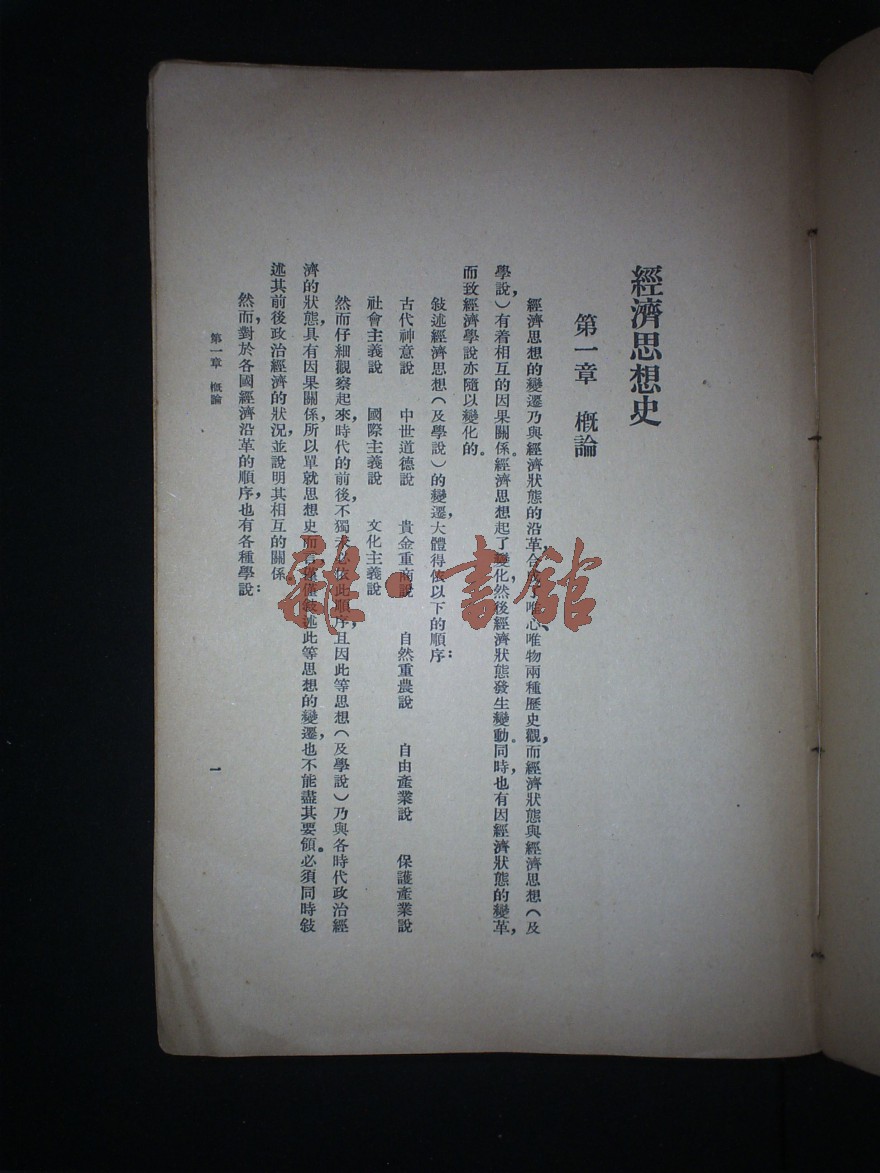 經濟思想史
第一章　概論
經濟思想的變遷乃與經濟狀態的沿革合成了唯心、唯物兩種歷史觀，而經濟狀態與經濟思想（及
學說）有着相互的因果關係。經濟思想起了變化，然後經濟狀態發生變動。同時，也有因經濟狀態的變革，
而致經濟學說亦隨以變化的。
敍述經濟思想（及學說）的變遷，大體得依以下的順序：
古代神意說　中世道德說　貴金重商說　自然重農說　自由產業說　保護產業說
社會主義說　國際主義說　文化主義說
然而仔細觀察起來，時代的前後，不獨未必依此順序，且因此等思想（及學說）乃與各時代政治經
濟的狀態，具有因果關係，所以單就思想史而言，僅僅敍述此等思想的變遷，也不能盡其要領。必須同時敍
述其前後政治經濟的狀況，並說明其相互的關係。
然而，對於各國經濟沿革的順序，也有各種學說：
第一章　概論
一
雜·書館